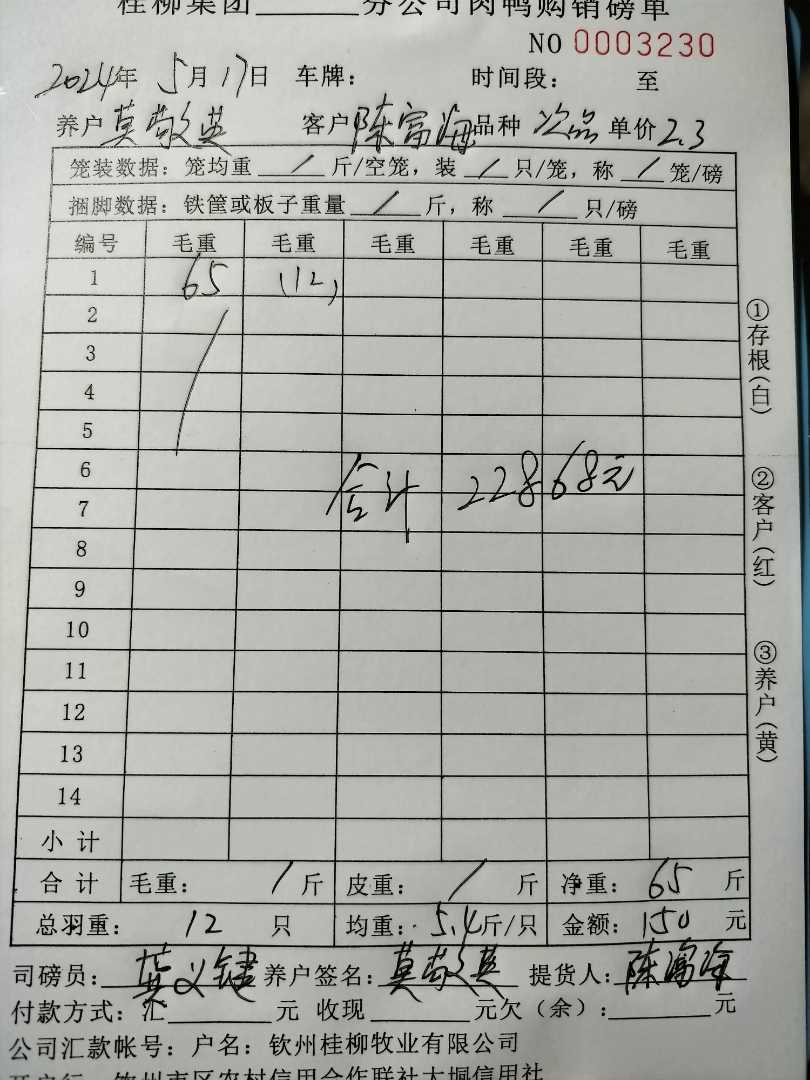 桂柳集团______分公司肉鸭购销磅单
NO 0003230
2024年 5月17日 车牌： 时间段： 至
养户 莫敬英 客户 陈富海 品种 次品 单价 2.3
笼装数据：笼均重 / 斤/空笼，装 / 只/笼，称 / 笼/磅
捆脚数据：铁筐或板子重量 / 斤，称 / 只/磅
编号 毛重 毛重 毛重 毛重 毛重 毛重
1 65 (12)
2
3
4
5
6
合计 22868元
7
8
9
10
11
12
13
14
小计
合计 毛重： / 斤 皮重： / 斤 净重： 65 斤
总羽重： 12 只 均重： 5.4 斤/只 金额： 150 元
司磅员： 义键 养户签名： 莫敬英 提货人： 陈富海
付款方式：汇______元 收现______元欠（余）：______元
公司汇款帐号：户名：钦州桂柳牧业有限公司
开户行：钦州市区农村信用合作联社大垌信用社
①存根(白)
②客户(红)
③养户(黄)